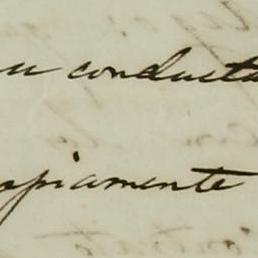 su conducta
opiamente